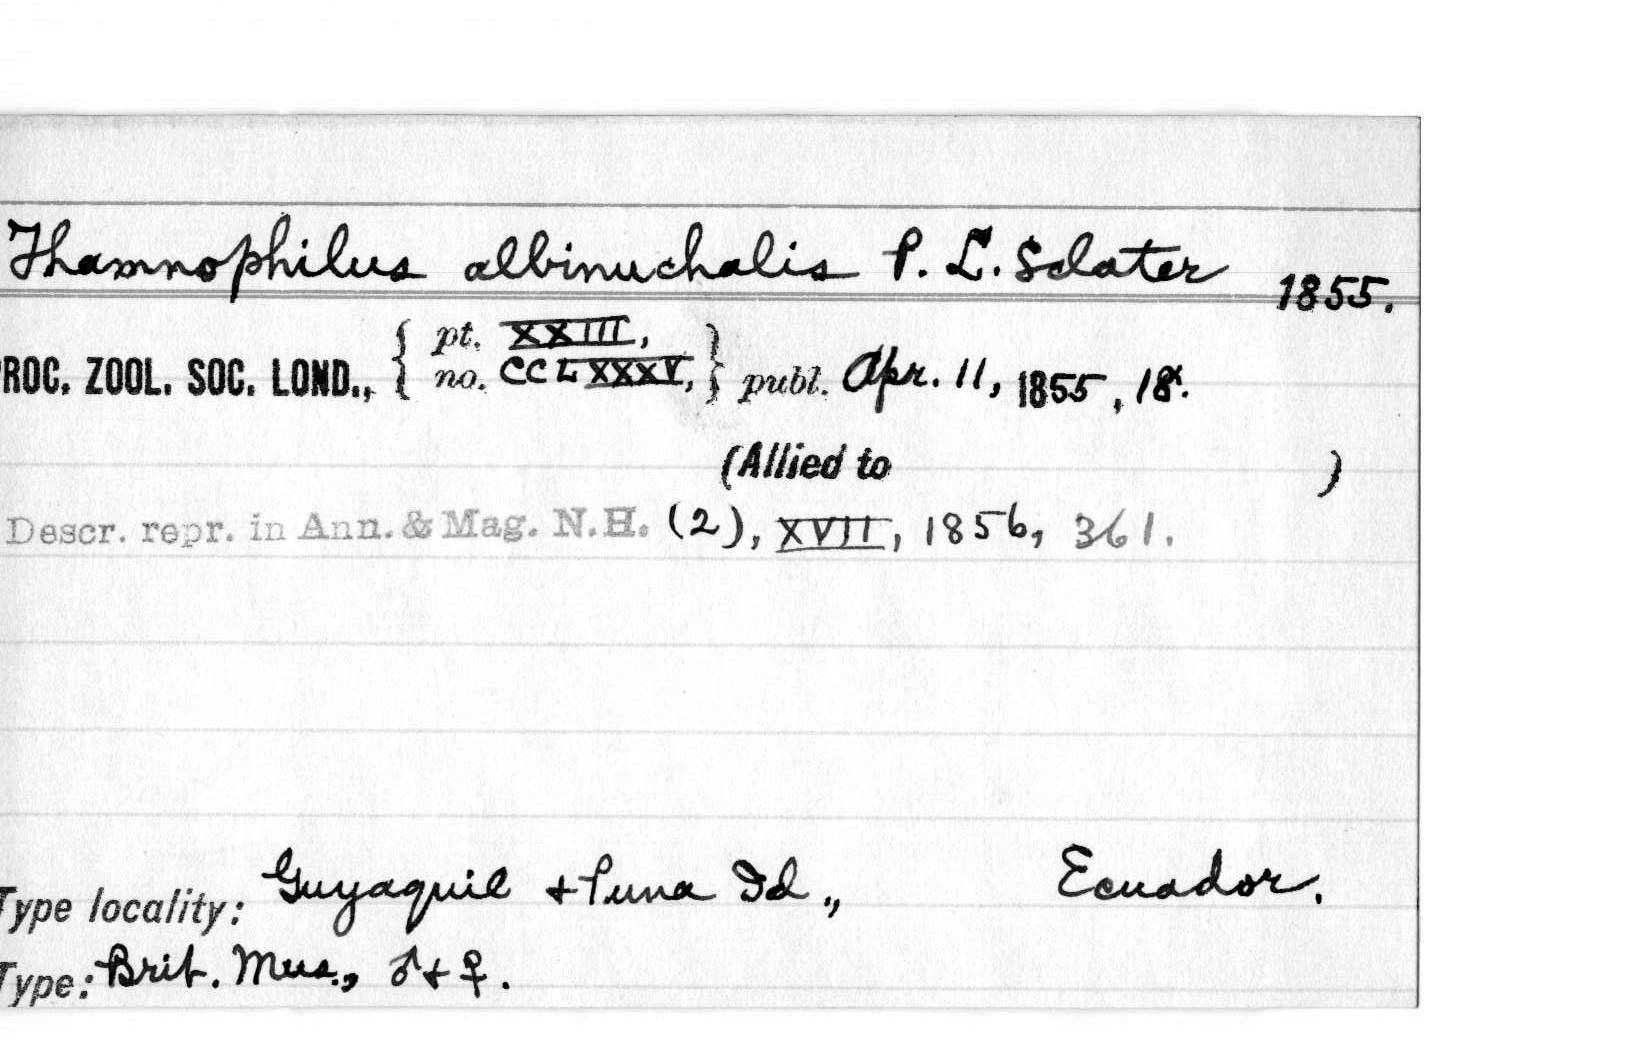 Thamnophilus albinuchalis P. L. Sclater 1855.
ROC. ZOOL. SOC. LOND., { pt. XXIII, no. CCLXXXV, } publ. Apr. 11, 1855, 18x.
(Allied to )
Descr. repr. in Ann. & Mag. N.H. (2), XVII, 1856, 361.
Type locality: Guyaquil + Puna Id., Ecuador.
Type: Brit. Mus., ♂ + ♀.